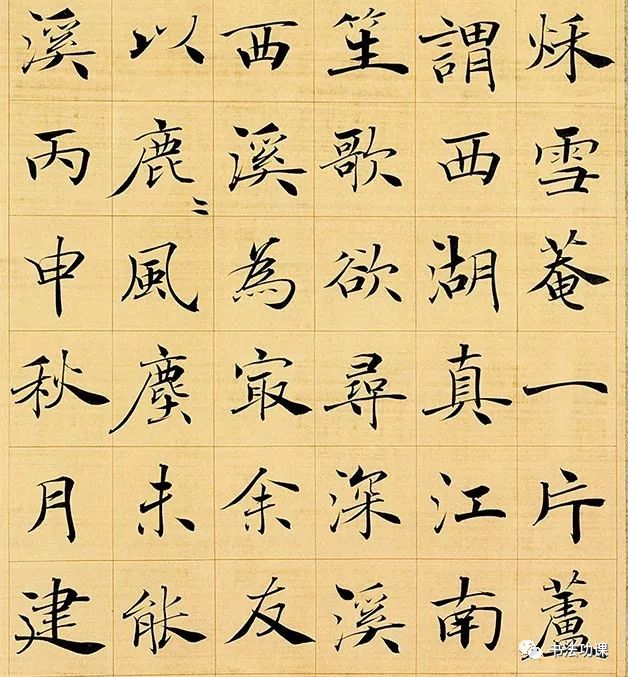 秌雪菴一片蘆
謂西湖真江南
笙歌欲尋深溪
西溪為㝡余友
以鹿〻風塵未能
溪丙申秋月建
书法功课